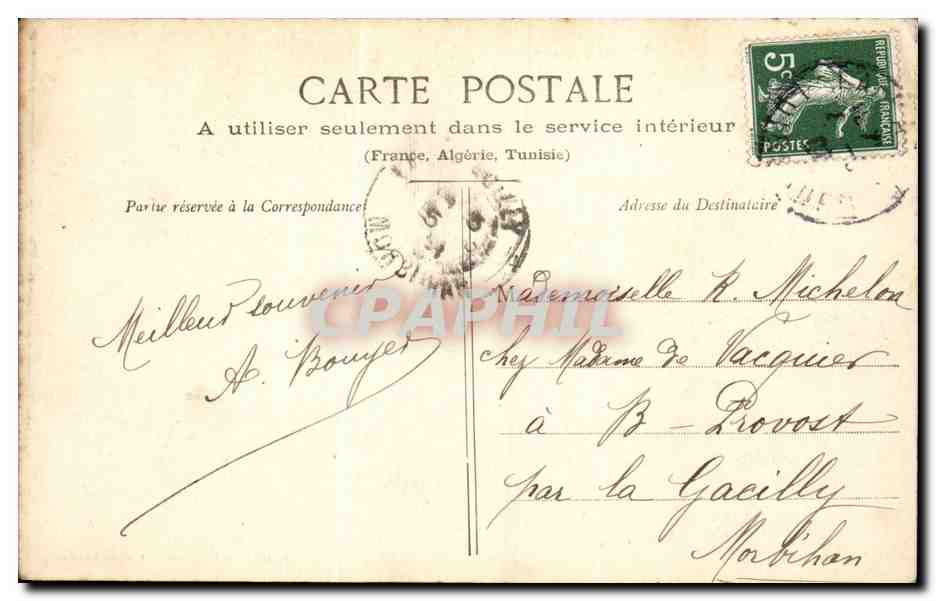 CARTE POSTALE
A utiliser seulement dans le service intérieur
(France, Algérie, Tunisie)
Partie réservée à la Correspondance
Adresse du Destinataire
REPUBLIQUE FRANÇAISE
5c
POSTES
Meilleur souvenir
A. Bouyer
Mademoiselle R. Michelon
chez Madame de Vacquier
à B - Provost
par la Gacilly
Morbihan
CPAPHIL